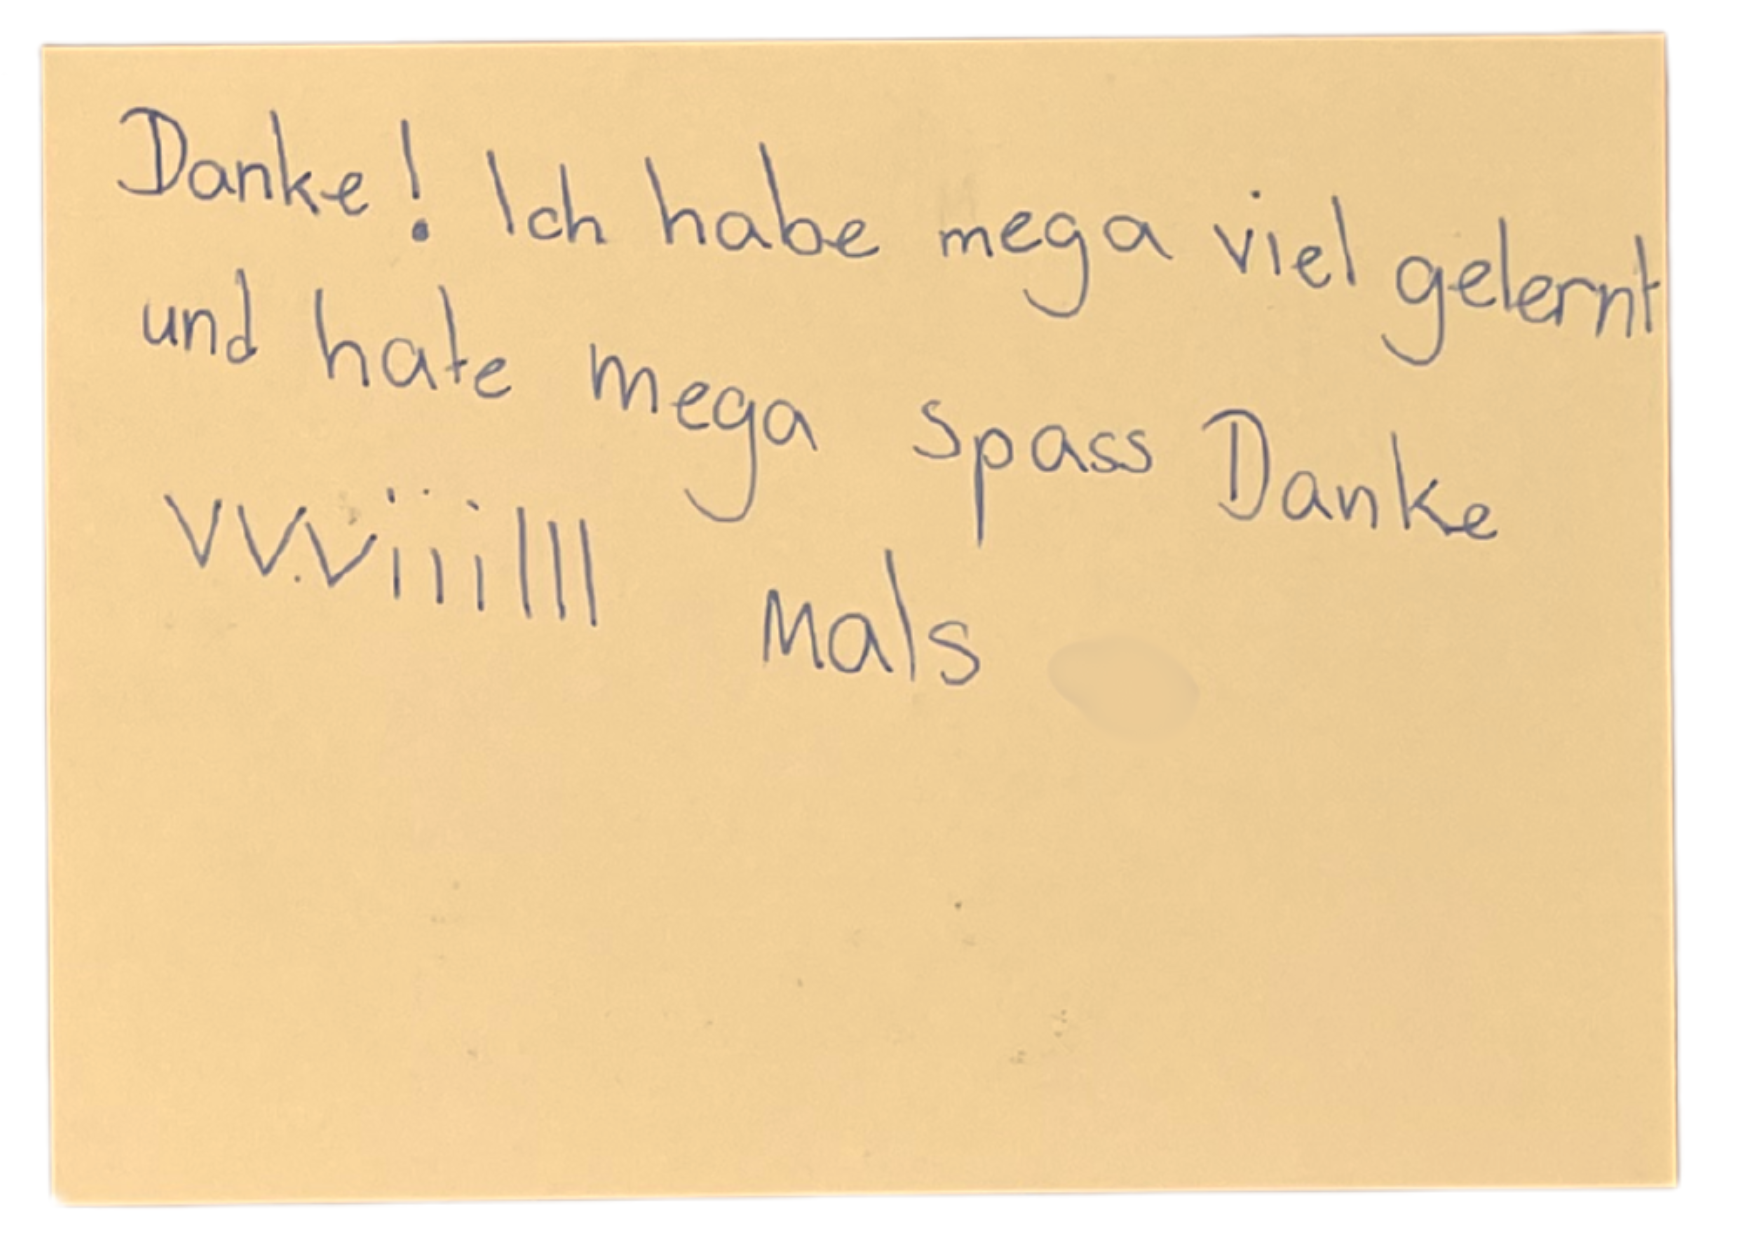 Danke! Ich habe mega viel gelernt
und hate mega spass Danke
vvviiilll mals